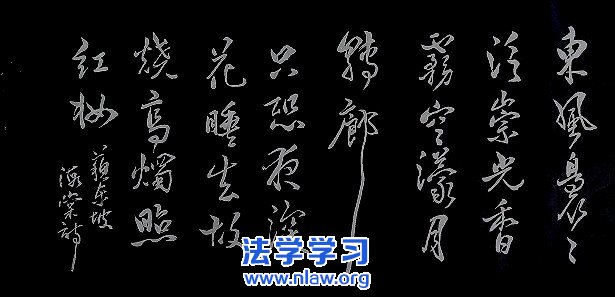 東風裊〻
泛崇光香
霧空濛月
轉廊
只恐夜深
花睡去故
燒高燭照
紅妝
蘇东坡
海棠詩
法学学习
www.nlaw.org